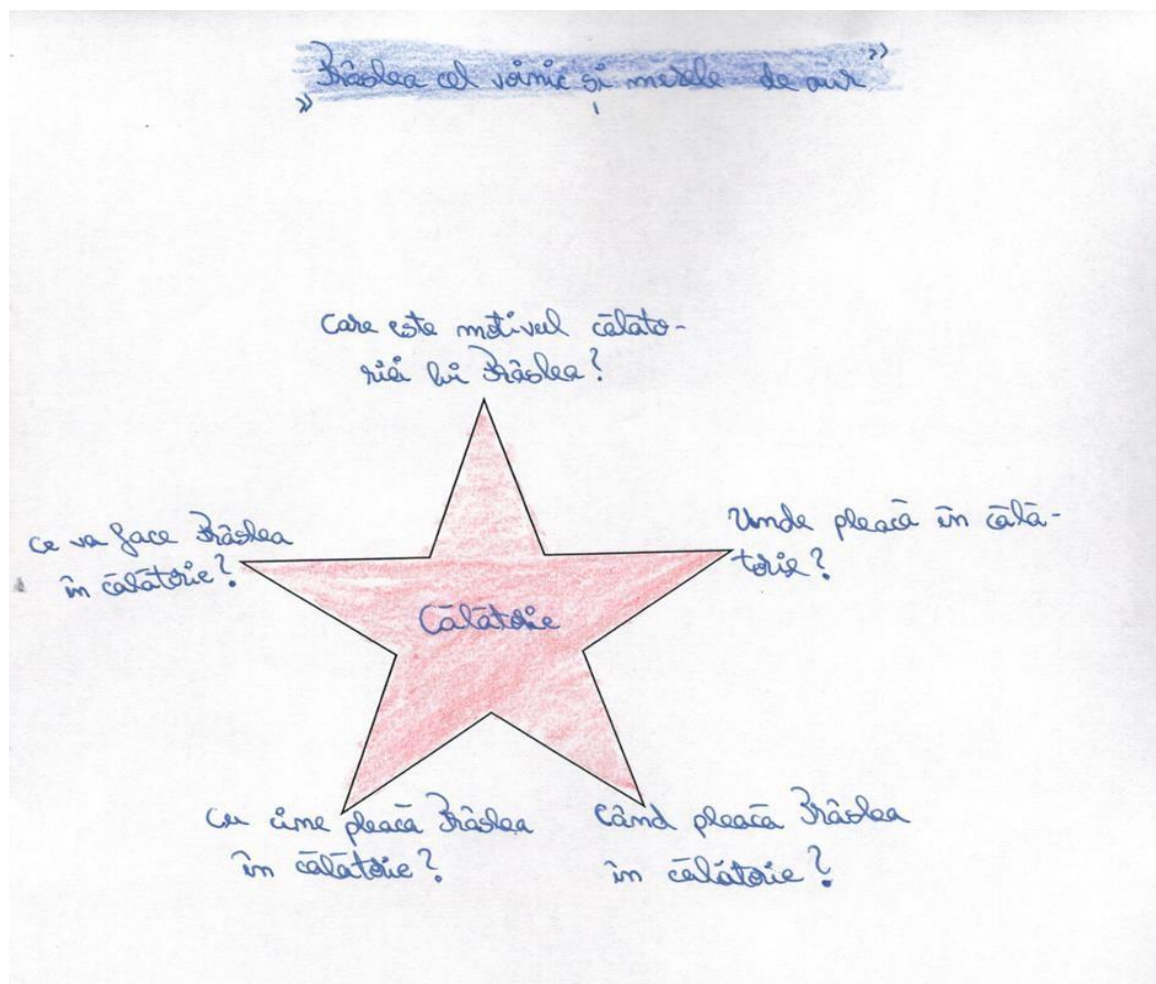 „Prâslea cel voinic și merele de aur”
Care este motivul călăto-
riei lui Prâslea?
Ce va face Prâslea
în călătorie?
Unde pleacă în călă-
torie?
Călătorie
Cu cine pleacă Prâslea
în călătorie?
Când pleacă Prâslea
în călătorie?